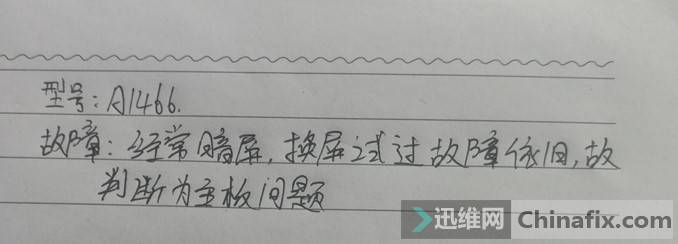 型号:A1466.
故障:经常暗屏,换屏试过故障依旧,故
判断为主板问题
迅维网 Chinafix.com